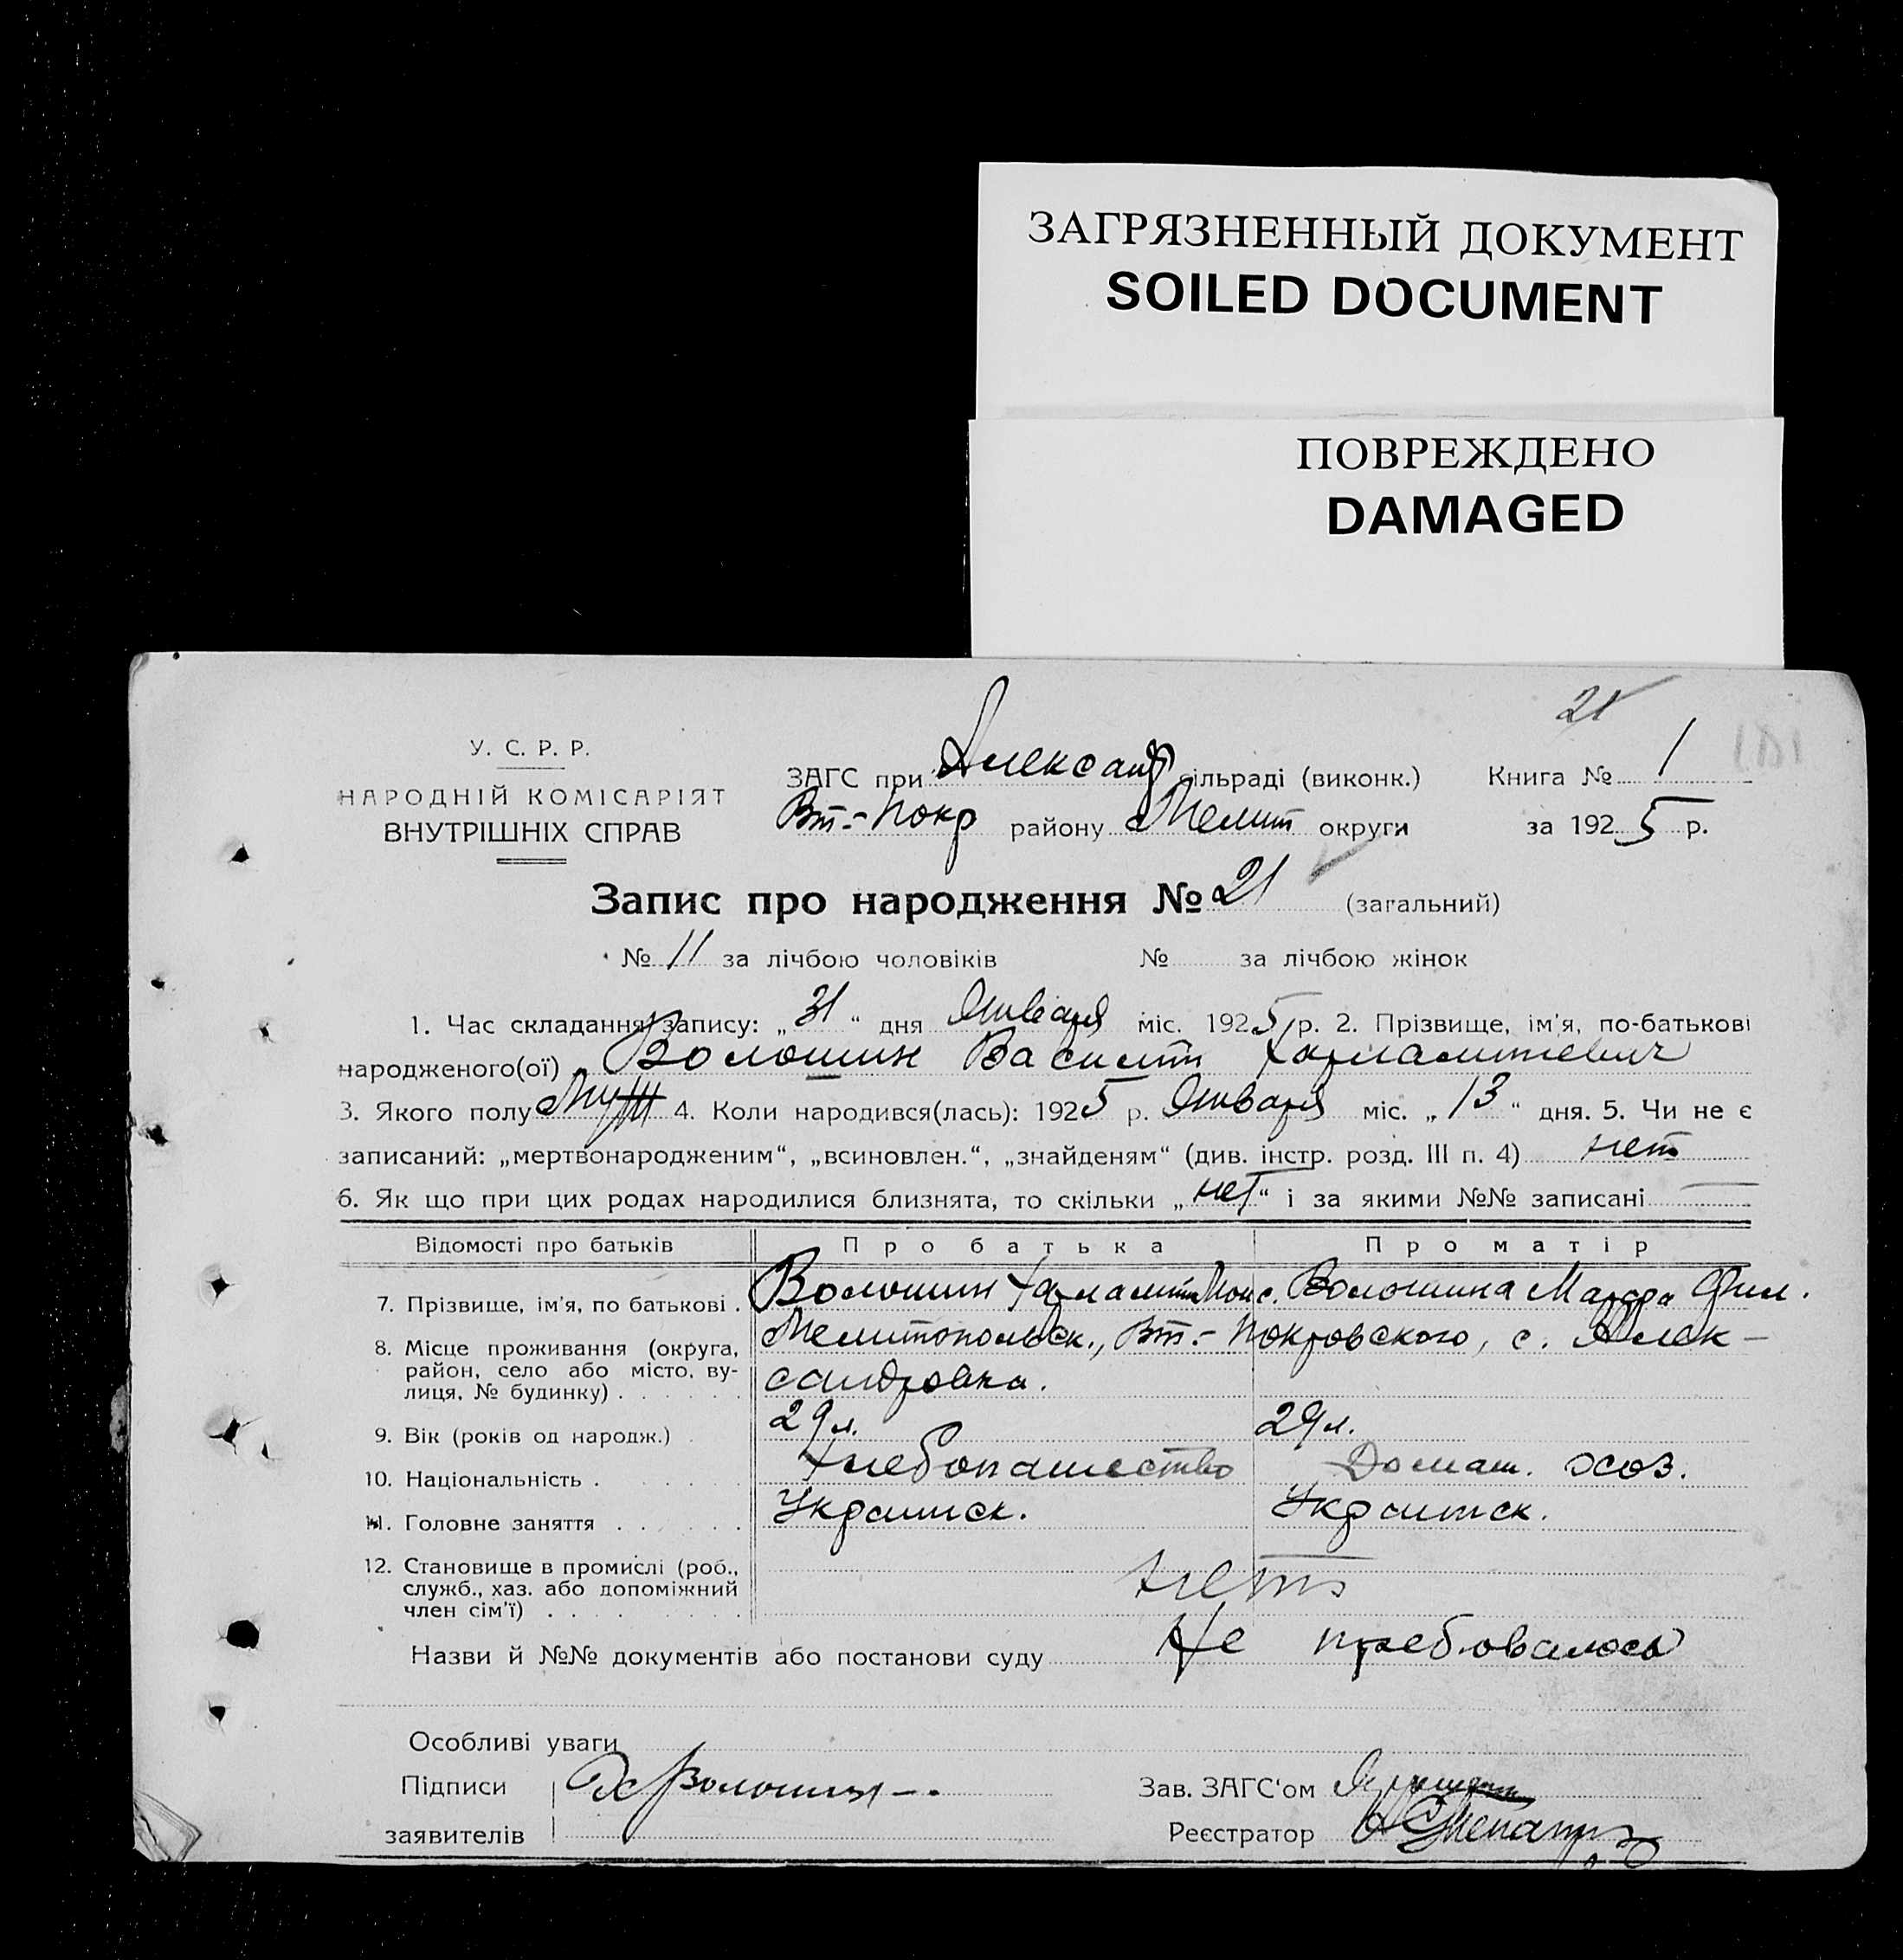 ЗАГРЯЗНЕННЫЙ ДОКУМЕНТ
SOILED DOCUMENT
ПОВРЕЖДЕНО
DAMAGED
21
У. С. Р. Р.
НАРОДНІЙ КОМІСАРІЯТ
ВНУТРІШНІХ СПРАВ
ЗАГС при Александр сільраді (виконк.) Книга № 1
Вт.-Покр району Мелит округи за 1925 р.
Запис про народження № 21 (загальний)
№ 11 за лічбою чоловіків № за лічбою жінок
1. Час складання запису: „31“ дня Января міс. 1925 р. 2. Прізвище, ім'я, по-батькові
народженого(ої) Волошин Василий Харлампиевич
3. Якого полу Муж 4. Коли народився(лась): 1925 р. Января міс. „13“ дня. 5. Чи не є
записаний: „мертвонародженим“, „всиновлен.“, „знайденям“ (див. інстр. розд. III п. 4) нет
6. Як що при цих родах народилися близнята, то скільки „нет“ і за якими №№ записані —
Відомості про батьків Про батька Про матір
7. Прізвище, ім'я, по батькові . Волошин Харлампий Моис. Волошина Марфа Фил.
8. Місце проживання (округа, район, село або місто, вулиця, № будинку) . Мелитопольск., Вт.-Покровского, с. Алек-
сандровка.
9. Вік (років од народж.) 29 л. 29 л.
10. Національність . Хлебопашество Домаш. хоз.
11. Головне заняття . Украинск. Украинск.
12. Становище в промислі (роб., служб., хаз. або допоміжний член сім'ї) . нет
Назви й №№ документів або постанови суду Не требовалось
Особливі уваги
Підписи Х Волошин Зав. ЗАГС'ом
заявителів Реєстратор